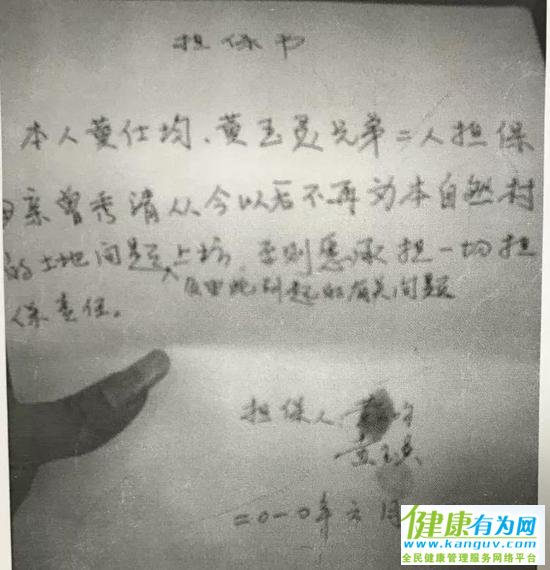 担保书
本人黄仕均、黄玉灵兄弟二人担保
母亲曾秀清从今以后不再为本自然村
的土地问题上坊,否则愿承担一切担
及由此引起的有关问题
保责任。
担保人:
黄玉灵
二〇一〇年六月
健康有为网
www.kanguv.com
全民健康管理服务网络平台